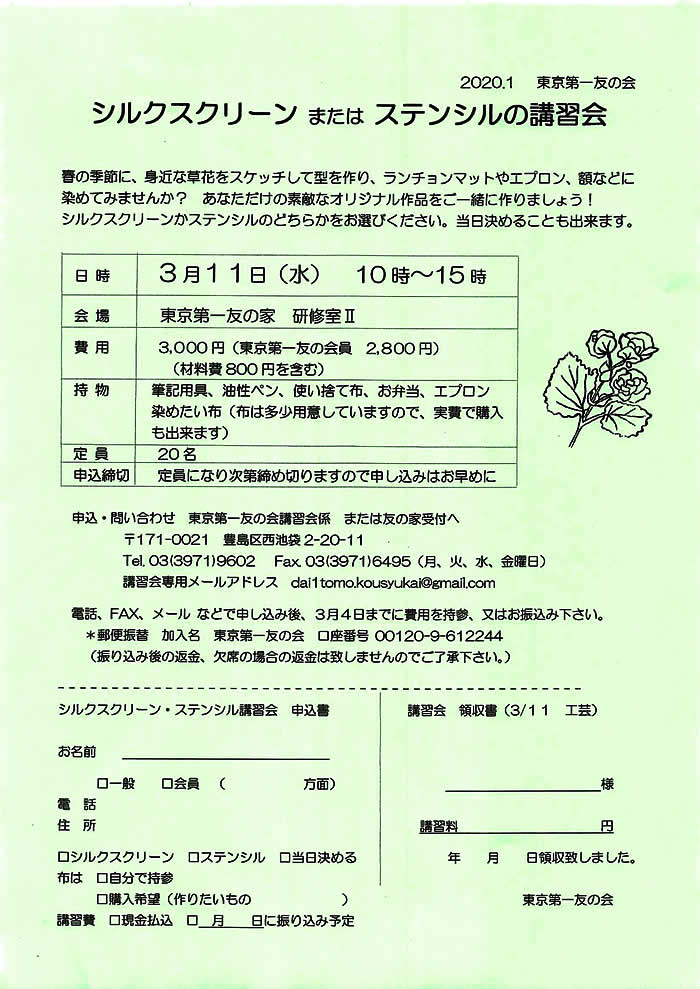 2020.1　東京第一友の会
シルクスクリーン または ステンシルの講習会
春の季節に、身近な草花をスケッチして型を作り、ランチョンマットやエプロン、額などに
染めてみませんか？　あなただけの素敵なオリジナル作品をご一緒に作りましょう！
シルクスクリーンかステンシルのどちらかをお選びください。当日決めることも出来ます。
日 時　3月11日（水）　10時～15時
会 場　東京第一友の家　研修室Ⅱ
費 用　3,000円（東京第一友の会員　2,800円）
（材料費800円を含む）
持 物　筆記用具、油性ペン、使い捨て布、お弁当、エプロン
染めたい布（布は多少用意していますので、実費で購入
も出来ます）
定 員　20名
申込締切　定員になり次第締め切りますので申し込みはお早めに
申込・問い合わせ　東京第一友の会講習会係　または友の家受付へ
〒171-0021　豊島区西池袋2-20-11
Tel. 03(3971)9602　Fax. 03(3971)6495（月、火、水、金曜日）
講習会専用メールアドレス　dai1tomo.kousyukai@gmail.com
電話、FAX、メール などで申し込み後、3月4日までに費用を持参、又はお振込み下さい。
＊郵便振替　加入名　東京第一友の会　口座番号 00120-9-612244
（振り込み後の返金、欠席の場合の返金は致しませんのでご了承下さい。）
シルクスクリーン・ステンシル講習会　申込書
お名前
□一般　□会員　（　　　　　　方面）
電 話
住 所
□シルクスクリーン　□ステンシル　□当日決める
布は　□自分で持参
□購入希望（作りたいもの　　　　　　　）
講習費　□現金払込　□　月　　日に振り込み予定
講習会　領収書（3/11　工芸）
様
講習料　　　　　　　　　円
年　　月　　日領収致しました。
東京第一友の会